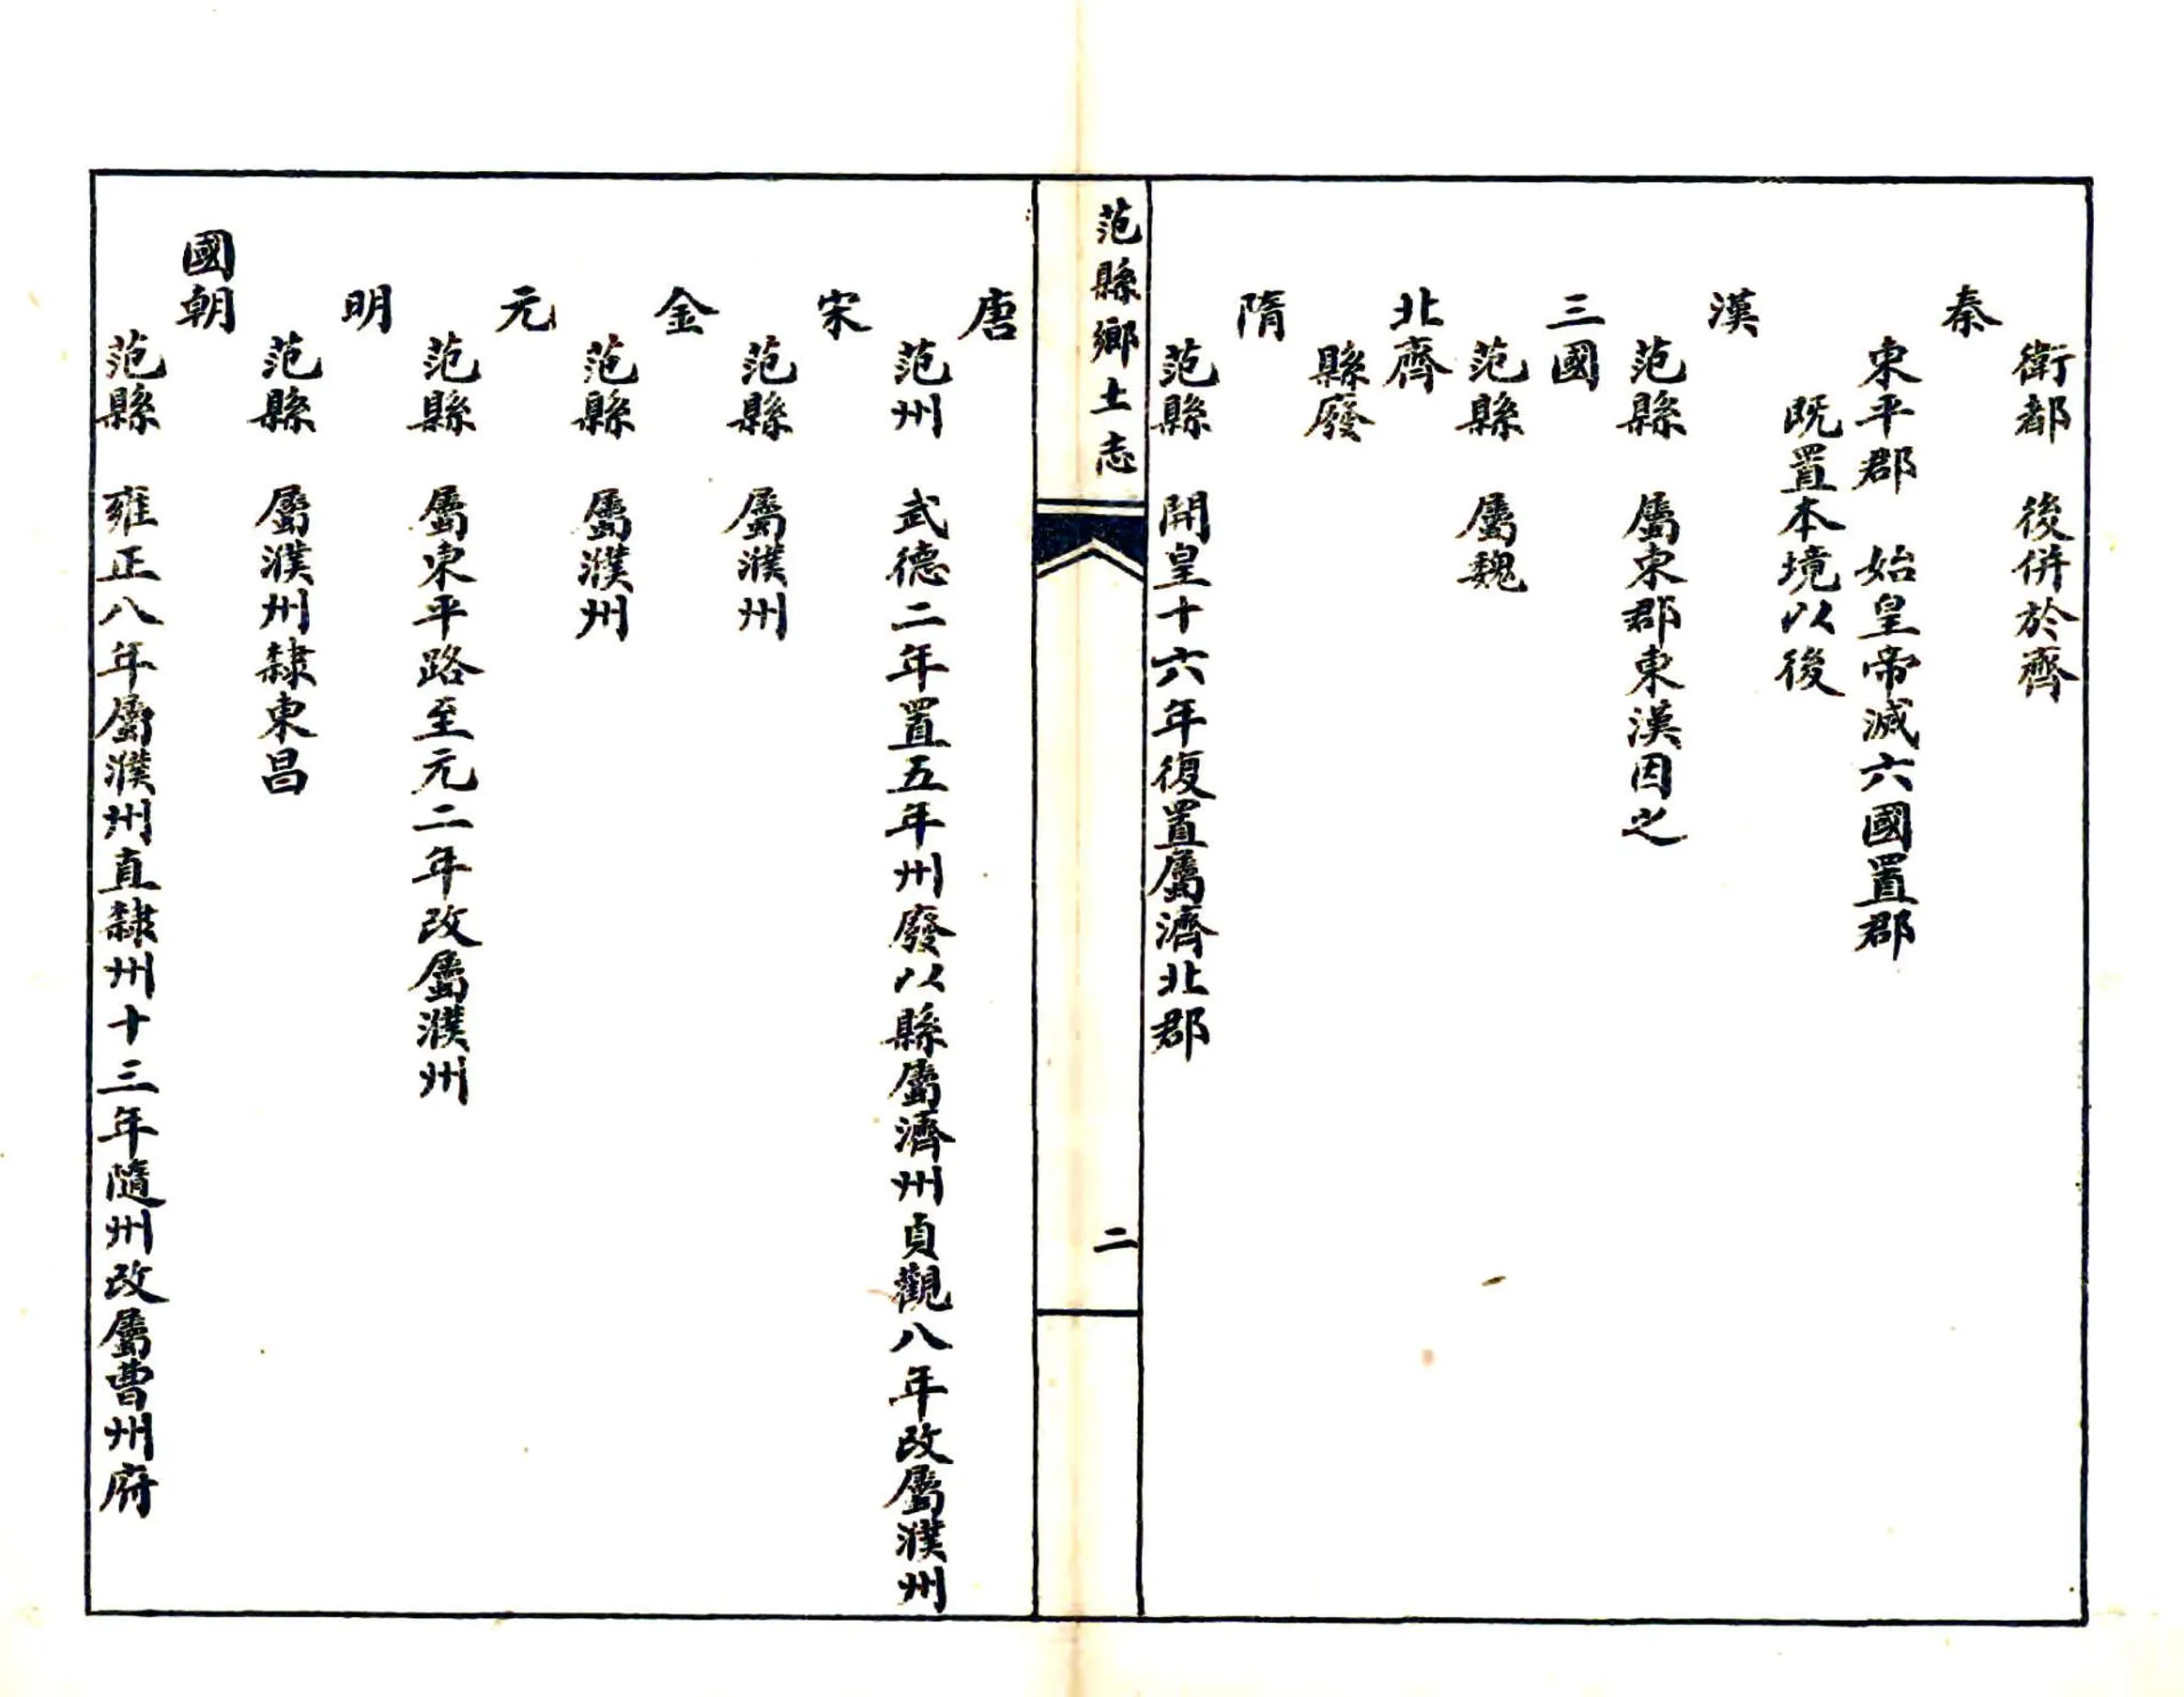 衛都　後併於齊
秦
東平郡　始皇帝滅六國置郡
既置本境以後
漢
范縣　屬東郡東漢因之
三國
范縣　屬魏
北齊
縣廢
隋
范縣　開皇十六年復置屬濟北郡
范縣鄉土志
二
唐
范州　武德二年置五年州廢以縣屬濟州貞觀八年改屬濮州
宋
范縣　屬濮州
金
范縣　屬濮州
元
范縣　屬東平路至元二年改屬濮州
明
范縣　屬濮州隸東昌
國朝
范縣　雍正八年屬濮州直隸州十三年隨州改屬曹州府